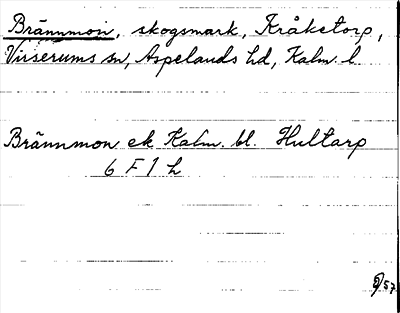 Brännmon, skogsmark, Kråketorp,
Virserums sn, Aspelands hd, Kalm. l.
Brännmon ek Kalm. bl. Hultarp
6 F 1 h
57